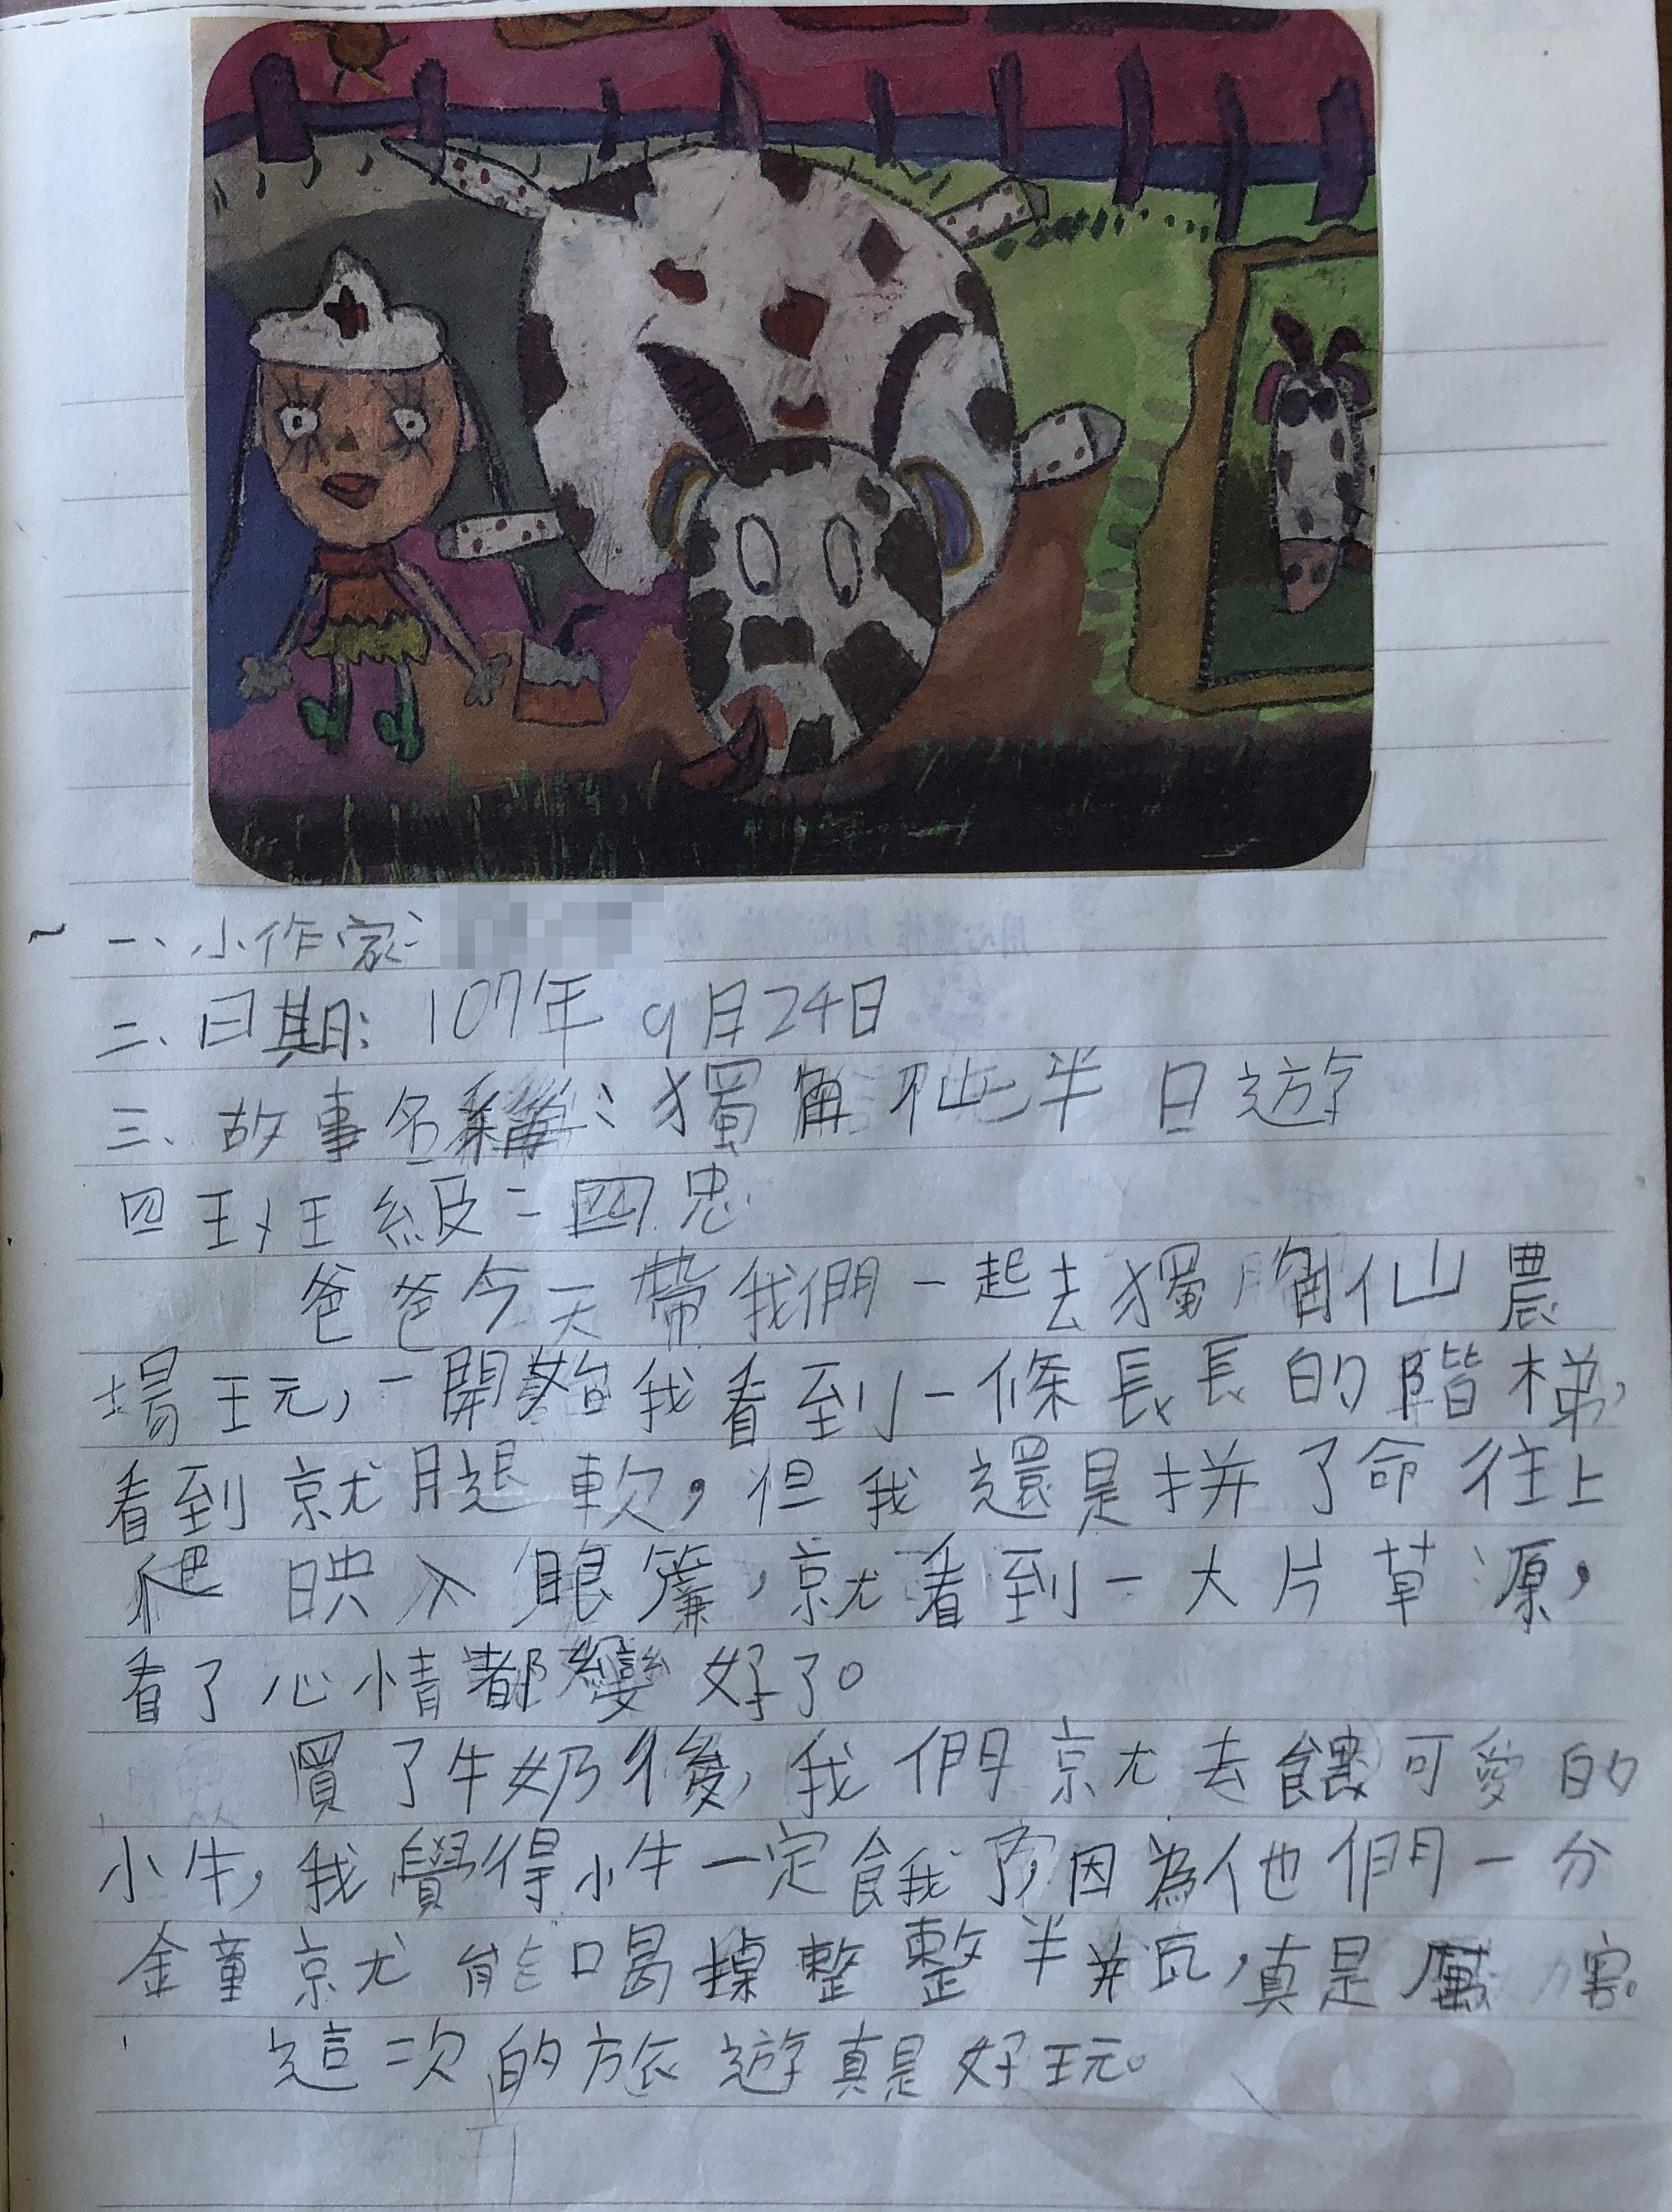 一、小作家:
二、日期:107年9月24日
三、故事名稱:獨角仙半日遊
四班級:四忠
爸爸今天帶我們一起去獨角仙農
場玩,一開始我看到一條長長的階梯,
看到就腿軟,但我還是拼了命往上
爬映入眼簾,就看到一大片草源,
看了心情都變好了。
買了牛奶後,我們就去餵可愛的
小牛,我覺得小牛一定餓了,因為他們一分
鐘就能喝掉整整半瓶,真是厲害。
這次的旅遊真是好玩。